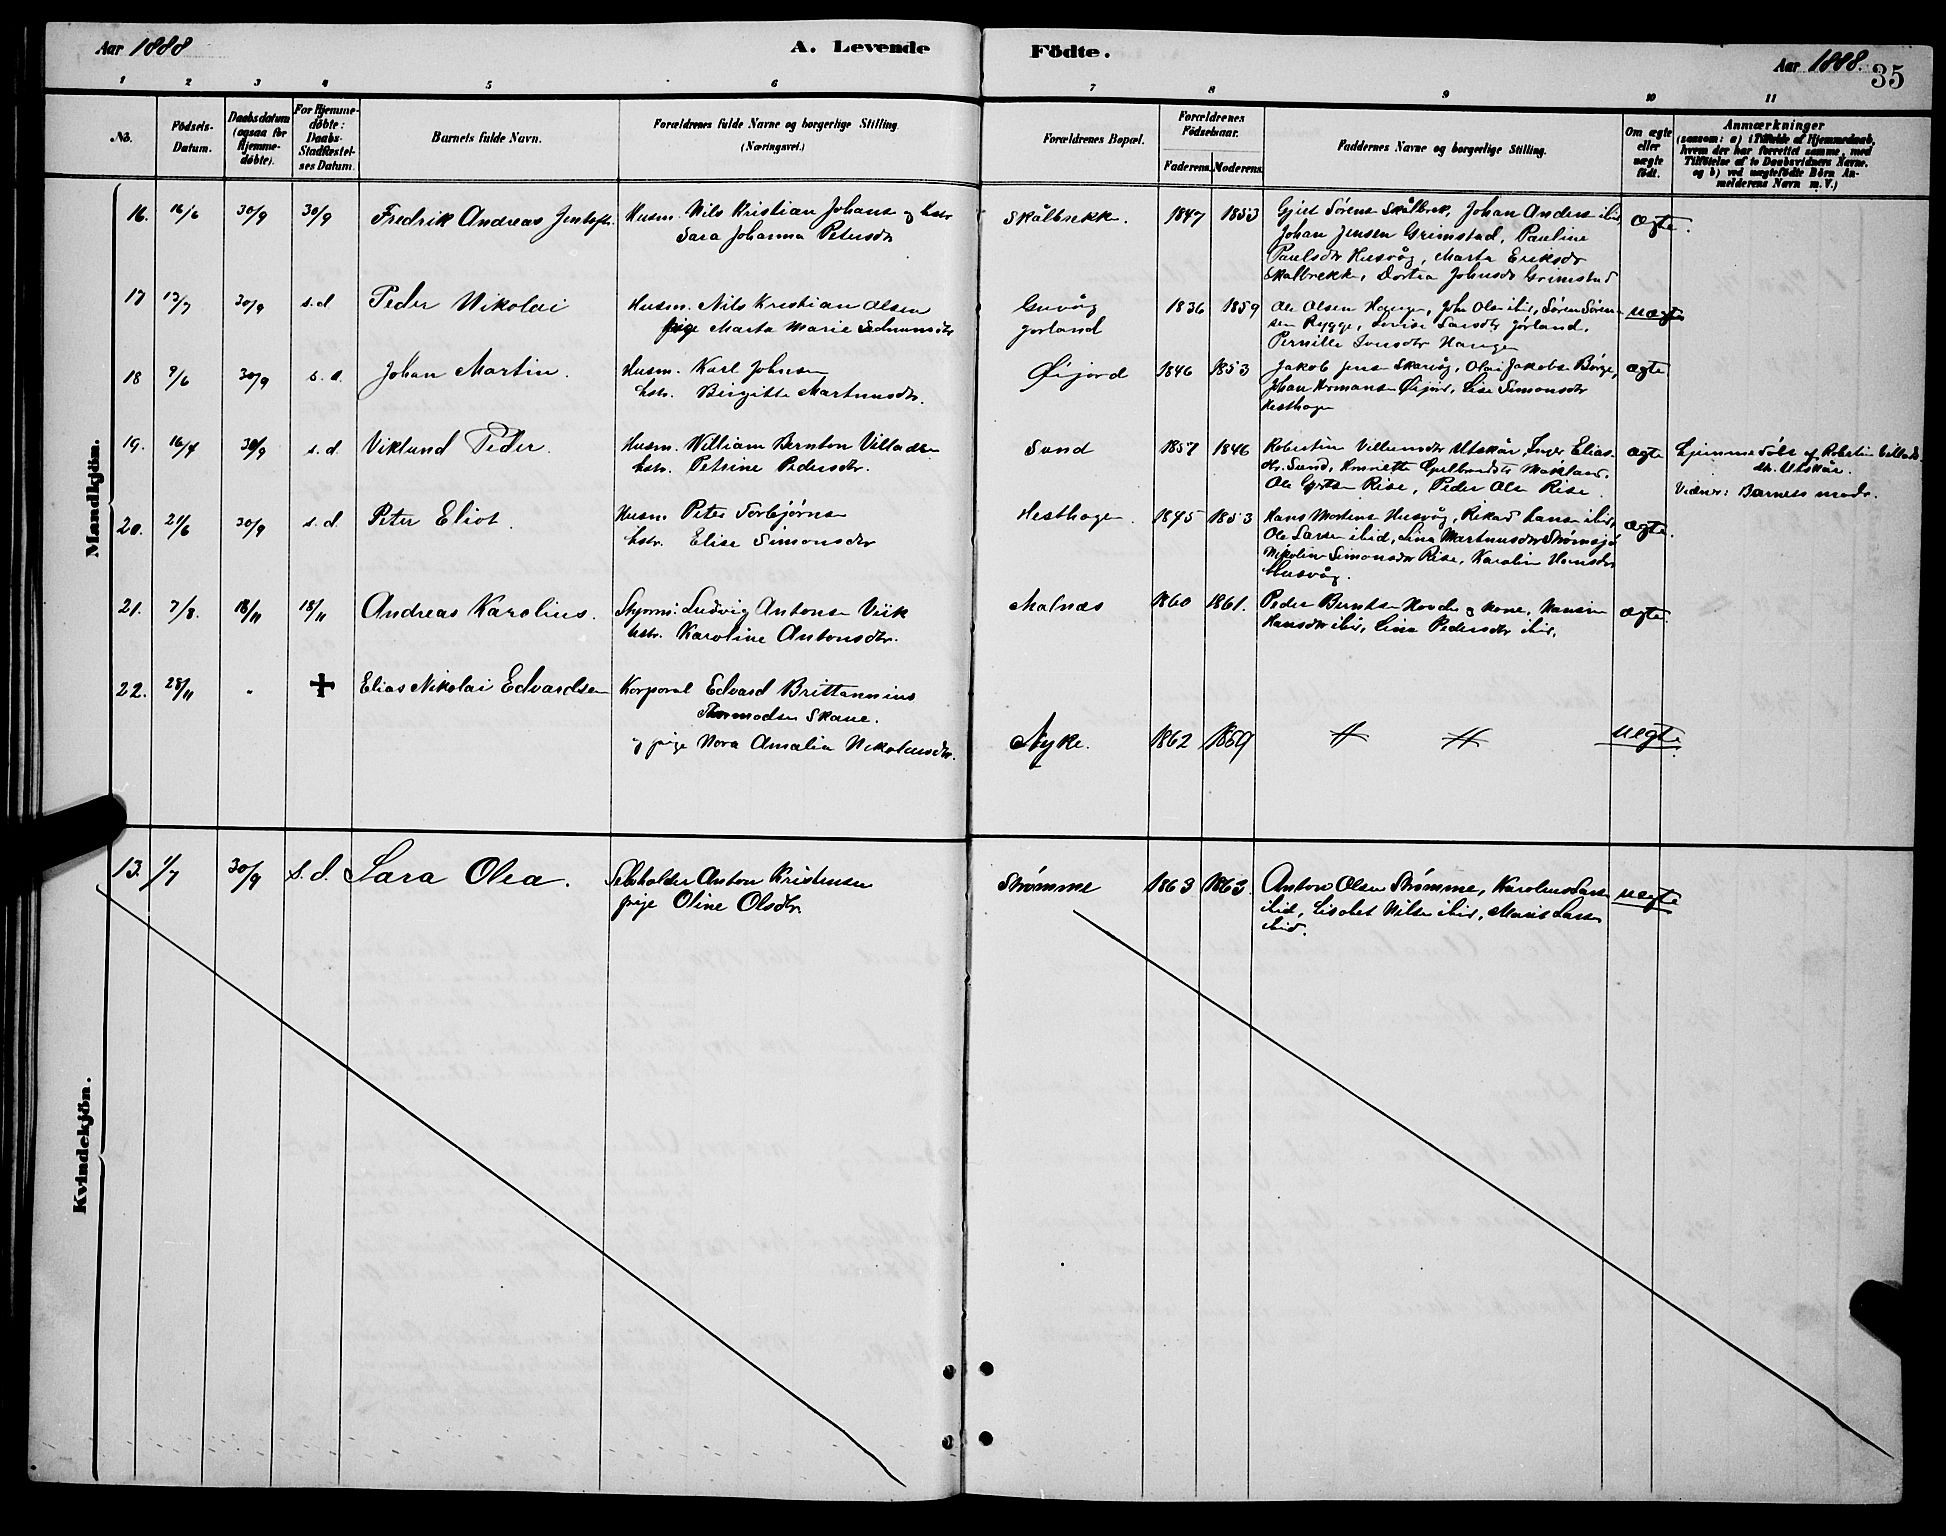 Aar 1888
A. Levende
Födte.
Aar 1888.
35
1 2 3 4 5 6 7 8 9 10 11
No.
Födsels-
Datum.
Daabsdatum
(ogsaa for
Hjemme-
døbte).
For Hjemme-
døbte:
Daabs-
Stadfæstel-
ses Datum.
Barnets fulde Navn.
Forældrenes fulde Navne og borgerlige Stilling.
(Næringsvei.)
Forældrenes Bopæl.
Forældrenes
Födselsaar.
Faderens. Moderens.
Faddernes Navne og borgerlige Stilling.
Om ægte
eller
uægte
født.
Anmærkninger
(saasom: a) i Tilfælde af Hjemmedaab,
hvem der har forrettet samme, med
Tilføielse af to Daabsvidners Navne,
og b) ved uægtefødte Börn An-
melderens Navn m. V.)
Mandkjön.
16. 16/6 30/9 30/9 Fredrik Andreas Jentoft. Husm. Nils Kristian Johans og hstr
Sara Johanna Petersdr
Skålbrekk. 1847 1853 Gjert Sørens Skålbrek, Johan Anders ibid,
Johan Jensen Grimstad, Pauline
Paulsdr Husvåg, Marta Eriksdr
Skalbrekk, Dortea Johnsdr Grimstad
ægte.
17 13/7 30/9 s.d Peder Nikolai Husm. Nils Kristian Olsen
pige Marta Marie
Guvåg
Jorland
1836 1859 Ole Olsen Hauge, John Olsn ibid, Søren Søren-
sen Rygge, Lovise Larsdtr Jorland,
Pernille Hauge
uægte
18 9/6 30/9 s. d. Johan Martin. Husm. Karl Johnsen
hstr. Birgitte Martinusdr.
Øijord 1846 1853 Jakob Jens Skarvåg, Olai Jakobs Børge,
Johan Hermans Øijord, Lise Simonsdr
Hesthagen
ægte
19. 16/4 30/9 s.d. Viklund Peder. Husm. William Bernton Villads
hstr. Petrine Pedersdr.
Sund 1857 1846 Robertine Villumsdr Utskår, Inger Elias-
dr. Sund, Maklans.
Ole Rise, Peder Ols Rise.
ægte Hjemmedøbt af Robertine
dr. Utskår.
Vidner: Barnets modr.
20. 21/6 30/9 s.d. Peter Eliot. Husm. Peter Torbjørns
hstr. Elise Simonsdr
Hesthagen. 1845 1853 Hans Mortens Husvåg, Rikard Hanse ibid,
Ole Larsen ibid, Lina Martinusdr Strømsjø
Nikoline Simonsdr Rise, Karoline Hansdr
Husvåg.
ægte.
21. 7/8. 18/11 18/11 Andreas Karolius. Ludvig Antons Viik
hstr. Karoline Antonsdtr.
Malnæs 1860 1861. Peder Berntse Hovden og kone, Hansine
Hansdr ibid, Lina Pedersdr ibid,
ægte.
22. 28/11 " ✝ Elias Nikolai Edvardsen Korporal Edvard Brittannius
Thormodsen Skane.
og pige Nora Amalia Nikolaisdtr.
Nyke. 1862 1859 # # uegte
Kvindekjön.
13. 1/7 30/9 s.d. Sara Olea. Selvholder Anton Kristensen
pige Oline Olsdtr
Strømme 1863 1863. Anton Olsen Strømme, Karolius Larse
ibid, Lisabet Nilse ibid, Maris Lars
ibid.
uegte